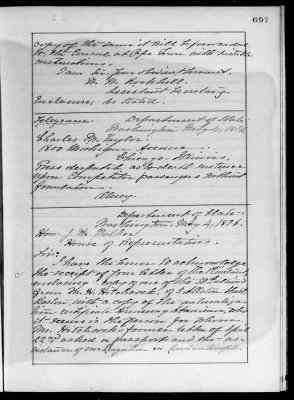 697
copy of the same it will be forwarded
to the Consul at Cape Town with suitable
instructions.
I am, Sir, Your obedient servant,
W. W. Rockhill.
Assistant Secretary.
Enclosure;
As stated.
Telegram.
Department of State
Washington May 4, 1896.
Charles M. Taylor,
1810 Michigan Avenue
Chicago, Illinois.
Press despatch as to
upon Competitor passengers without
foundation.
Olney.
Department of State
Washington, May 4, 1896.
Hon. J. W.
House of Representatives.
Sir:
I have the honor to acknowledge
the receipt of your letter of the
enclosing copy of one of the
from Mr. H. Hitchcock, of
Boston, with a copy of the naturaliza-
tion certificate
it seems is the person for whom
Mr. Hitchcock's former letter of April
22nd asked a passport and the as-
sistance of our Legation in Constantinople.